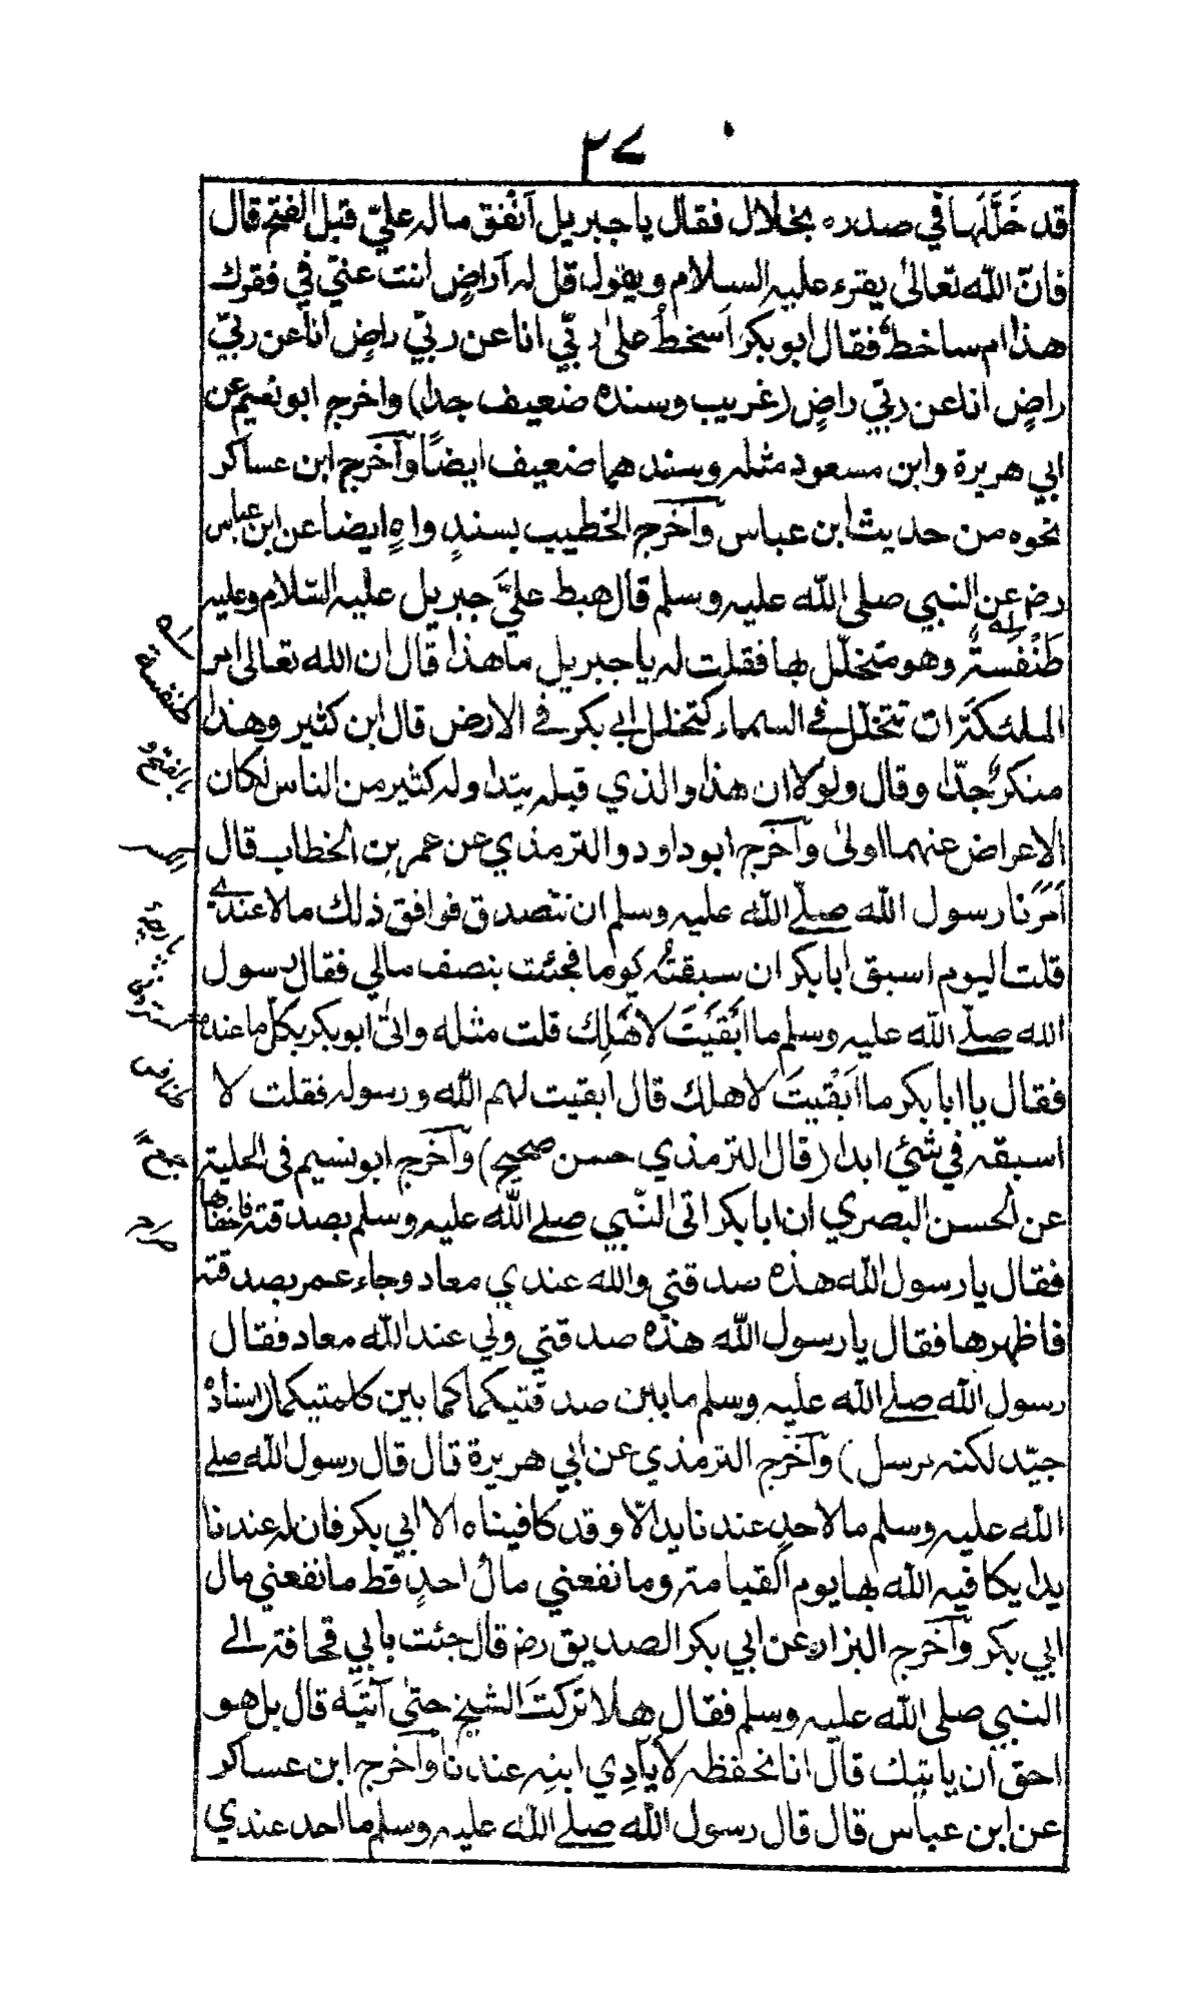 ٢٧
قد خَلَّلَها في صدره بخلال فقال يا جبريل اَنْفق ماله عليّ قبل الفتح قال
فانّ الله تعالىٰ يقرء عليه السلام ويقول قل له أراضٍ انت عنّي في فقرك
هذا ام ساخط فقال ابو بكر أسخط علىٰ ربّي انا عن ربّي راضٍ انا عن ربّي
راضٍ انا عن ربّي راضٍ (غريب وسنده ضعيف جدا) واخرج ابو نعيم عن
ابي هريرة وابن مسعود مثله وسندهما ضعيف ايضًا وآخرج ابن عساكر
نحوه من حديث ابن عباس وآخرج الخطيب بسندٍ واهٍ ايضا عن ابن عباس
رضـ عن النبي صلى الله عليه وسلم قال هبط عليَّ جبريل عليه السّلام وعليه
طَنْفَسَةٌ وهو متخلّل بها فقلت له يا جبريل ما هذا قال ان الله تعالى امر
الملٰئكة ان تتخلّل في السماء كتخلل ابي بكر في الارض قال ابن كثير وهذا
منكرٌ جدّا وقال ولولا ان هذا والذي قبله يتداوله كثير من الناس لكان
الاعراض عنهما اولىٰ وآخرج ابو داود والترمذي عن عمر بن الخطاب قال
اَمَرَنا رسول الله صلّے الله عليه وسلم ان نتصدق فوافق ذلك مالا عندے
قلت اليوم اسبق ابا بكر ان سبقتُه يوما فجئت بنصف مالي فقال رسول
الله صلّے الله عليه وسلم ما ابْقَيْتَ لاهْلِك قلت مثله واتىٰ ابو بكر بكلّ ما عنده
فقال يا ابا بكر ما ابْقَيْتَ لاهلك قال ابقيت لهم الله ورسوله فقلت لا
اسبقه في شئي ابدا (قال الترمذي حسن صحيح) وآخرج ابو نسيم فى الحلية
عن الحسن البصري ان ابا بكر اتى النّبي صلے الله عليه وسلم بصدقته فاخفاها
فقال يا رسول الله هذه صدقتي والله عندي معاد وجاء عمر بصدقته
فاظهرها فقال يا رسول الله هذه صدقتي ولي عند الله معاد فقال
رسول الله صلے الله عليه وسلم ما بين صدقتيكما كما بين كلمتيكما (اسناده
جيّد لكنه مرسل) وآخرج الترمذي عن ابي هريرة قال قال رسول الله صلے
الله عليه وسلم ما لاحدٍ عندنا يد الّا وقد كافيناه الا ابي بكر فان له عندنا
يدا يكافيه الله بها يوم القيامة وما نفعني مالُ احدٍ قط ما نفعني مال
ابي بكر وآخرج البزار عن ابي بكر الصديق رضـ قال جئت بابي قحافة الے
النبي صلى الله عليه وسلم فقال هلا تركتَ الشيخ حتىٰ آتيَه قال بل هو
احق ان ياتيك قال انا نحفظه لايادِي ابنِه عندنا وآخرج ابن عساكر
عن ابن عباس قال قال رسول الله صلے الله عليه وسلم ما احد عندي
له
طنفسة